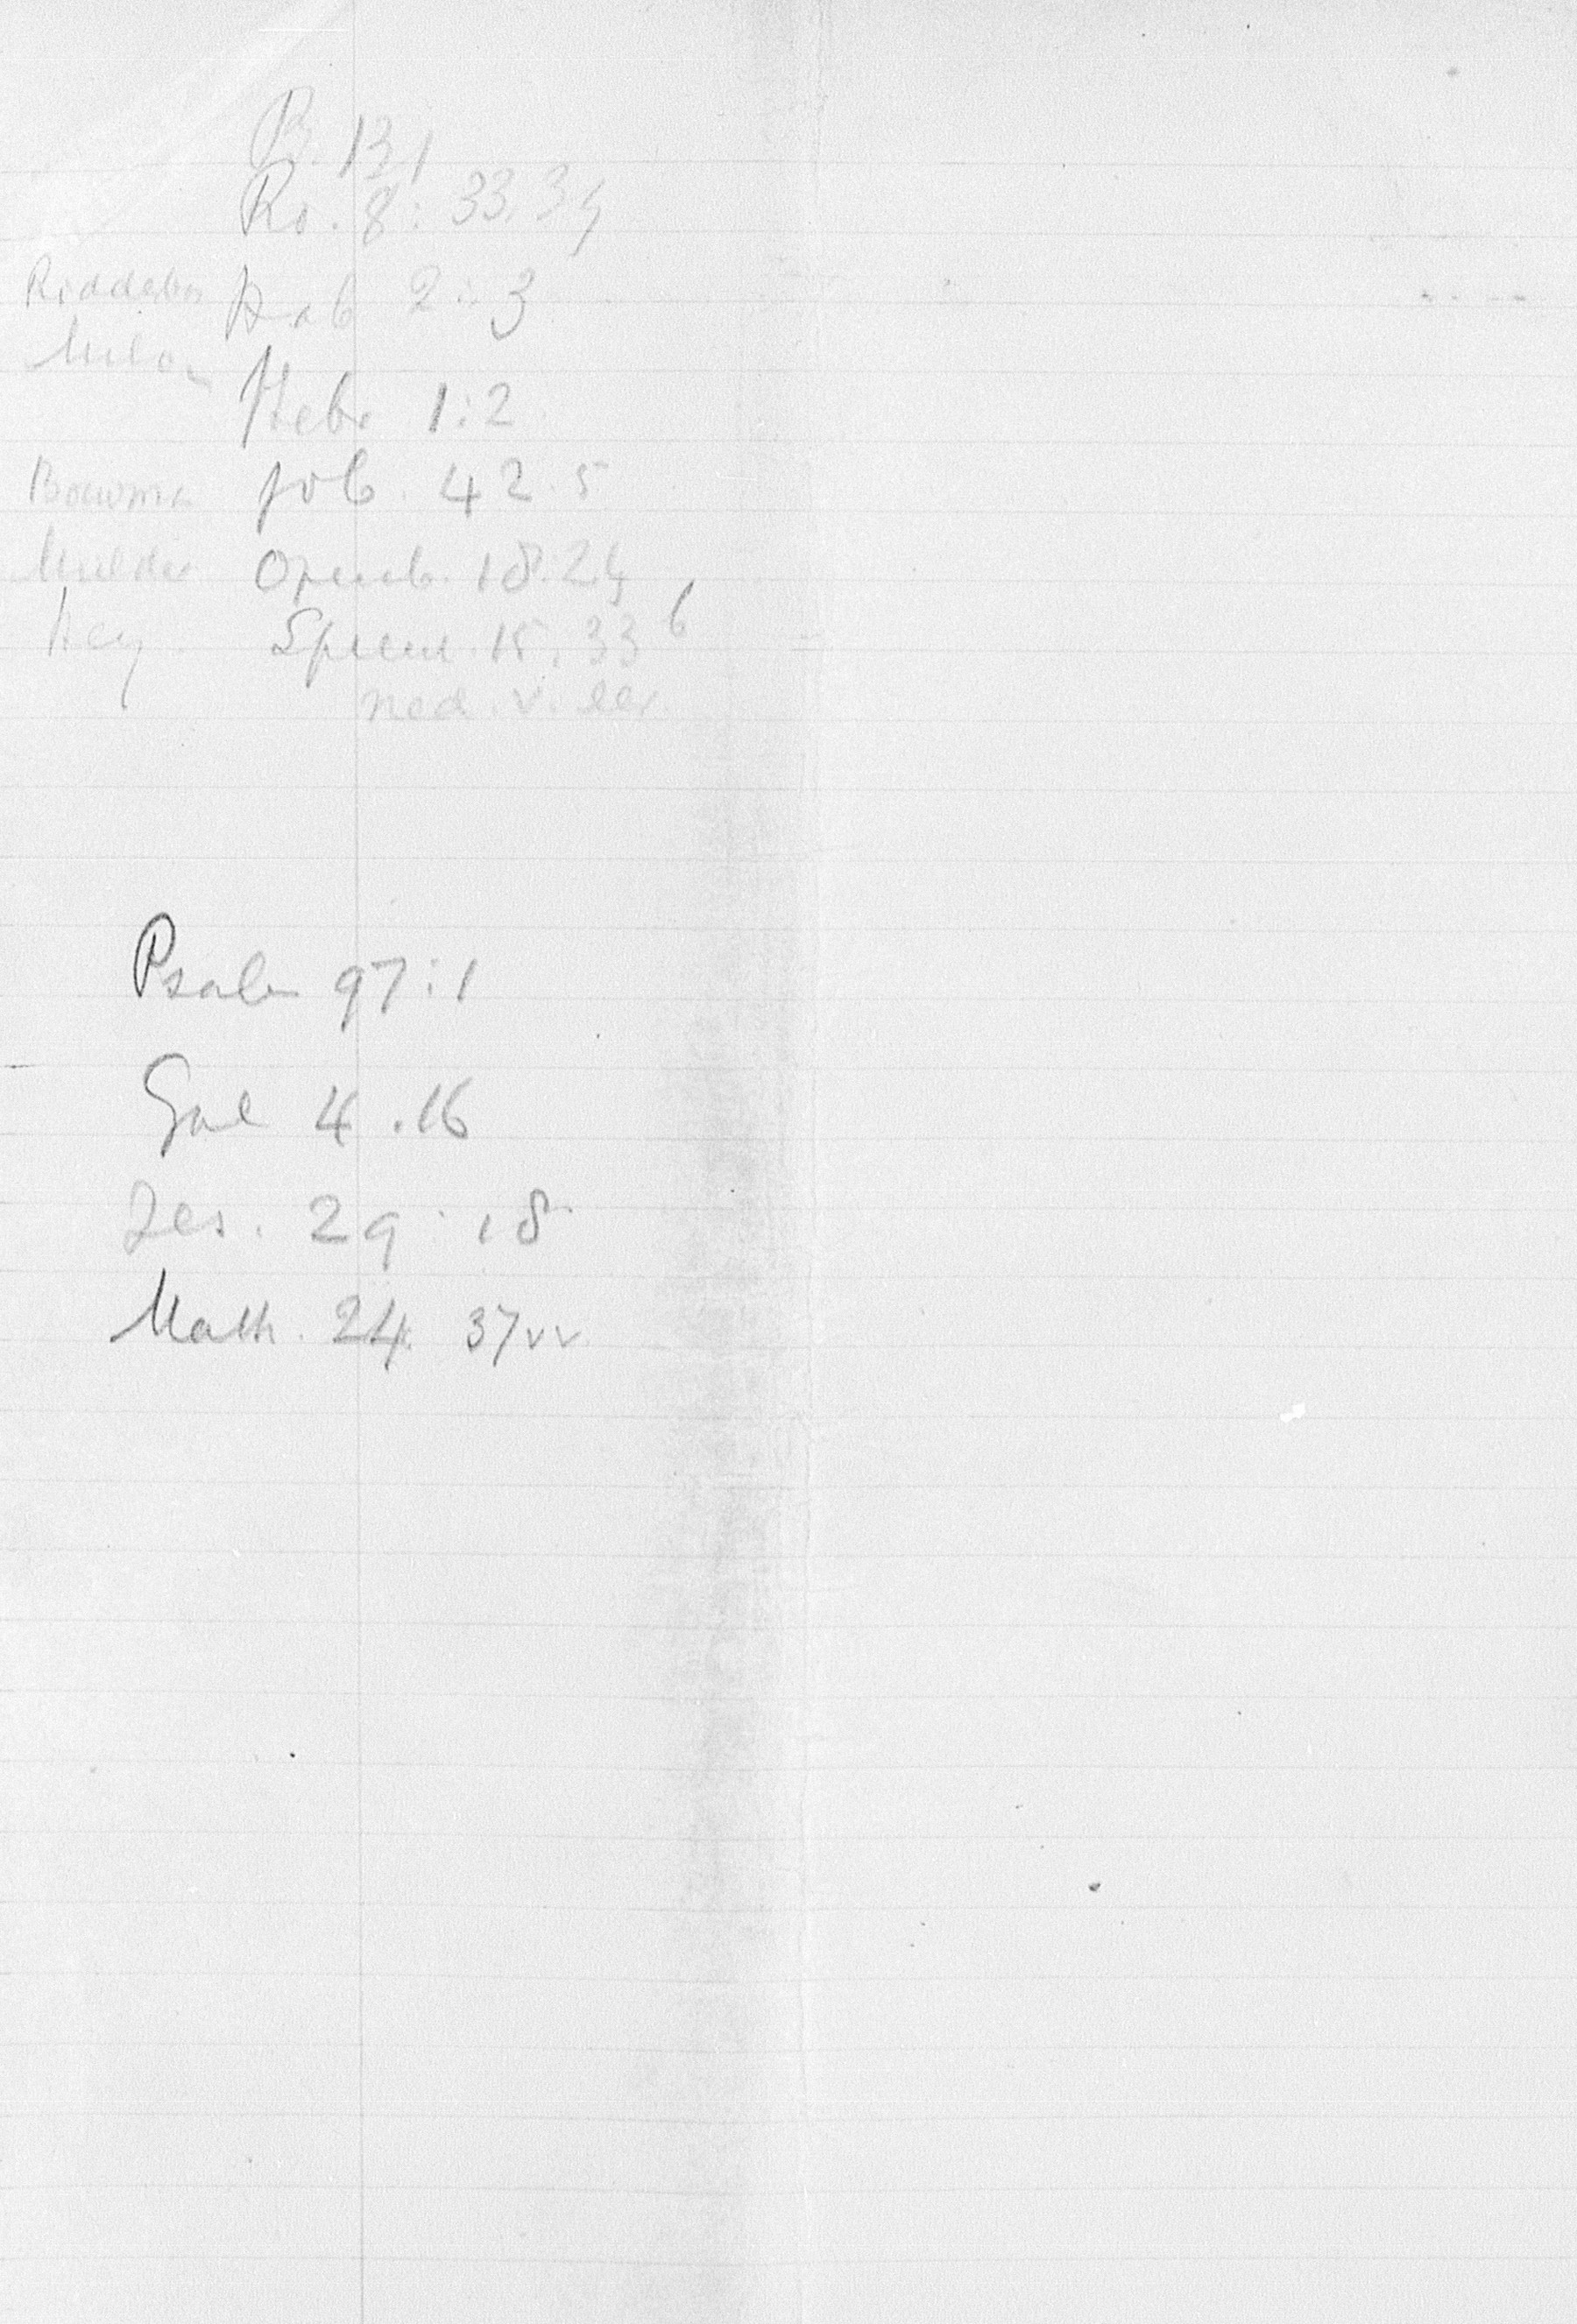 Ps. 131
Ro. 8: 33, 34
Ridderbos Hab 2: 3
Hebr 1:2
Bouwma Job. 42.5
Mulder Openb. 18:24
Hey. Spreuk. 15:33 b
ned. v. eer.
Psalm 97:1
Gal 4.16
Jes. 29:18
Matth. 24. 37vv